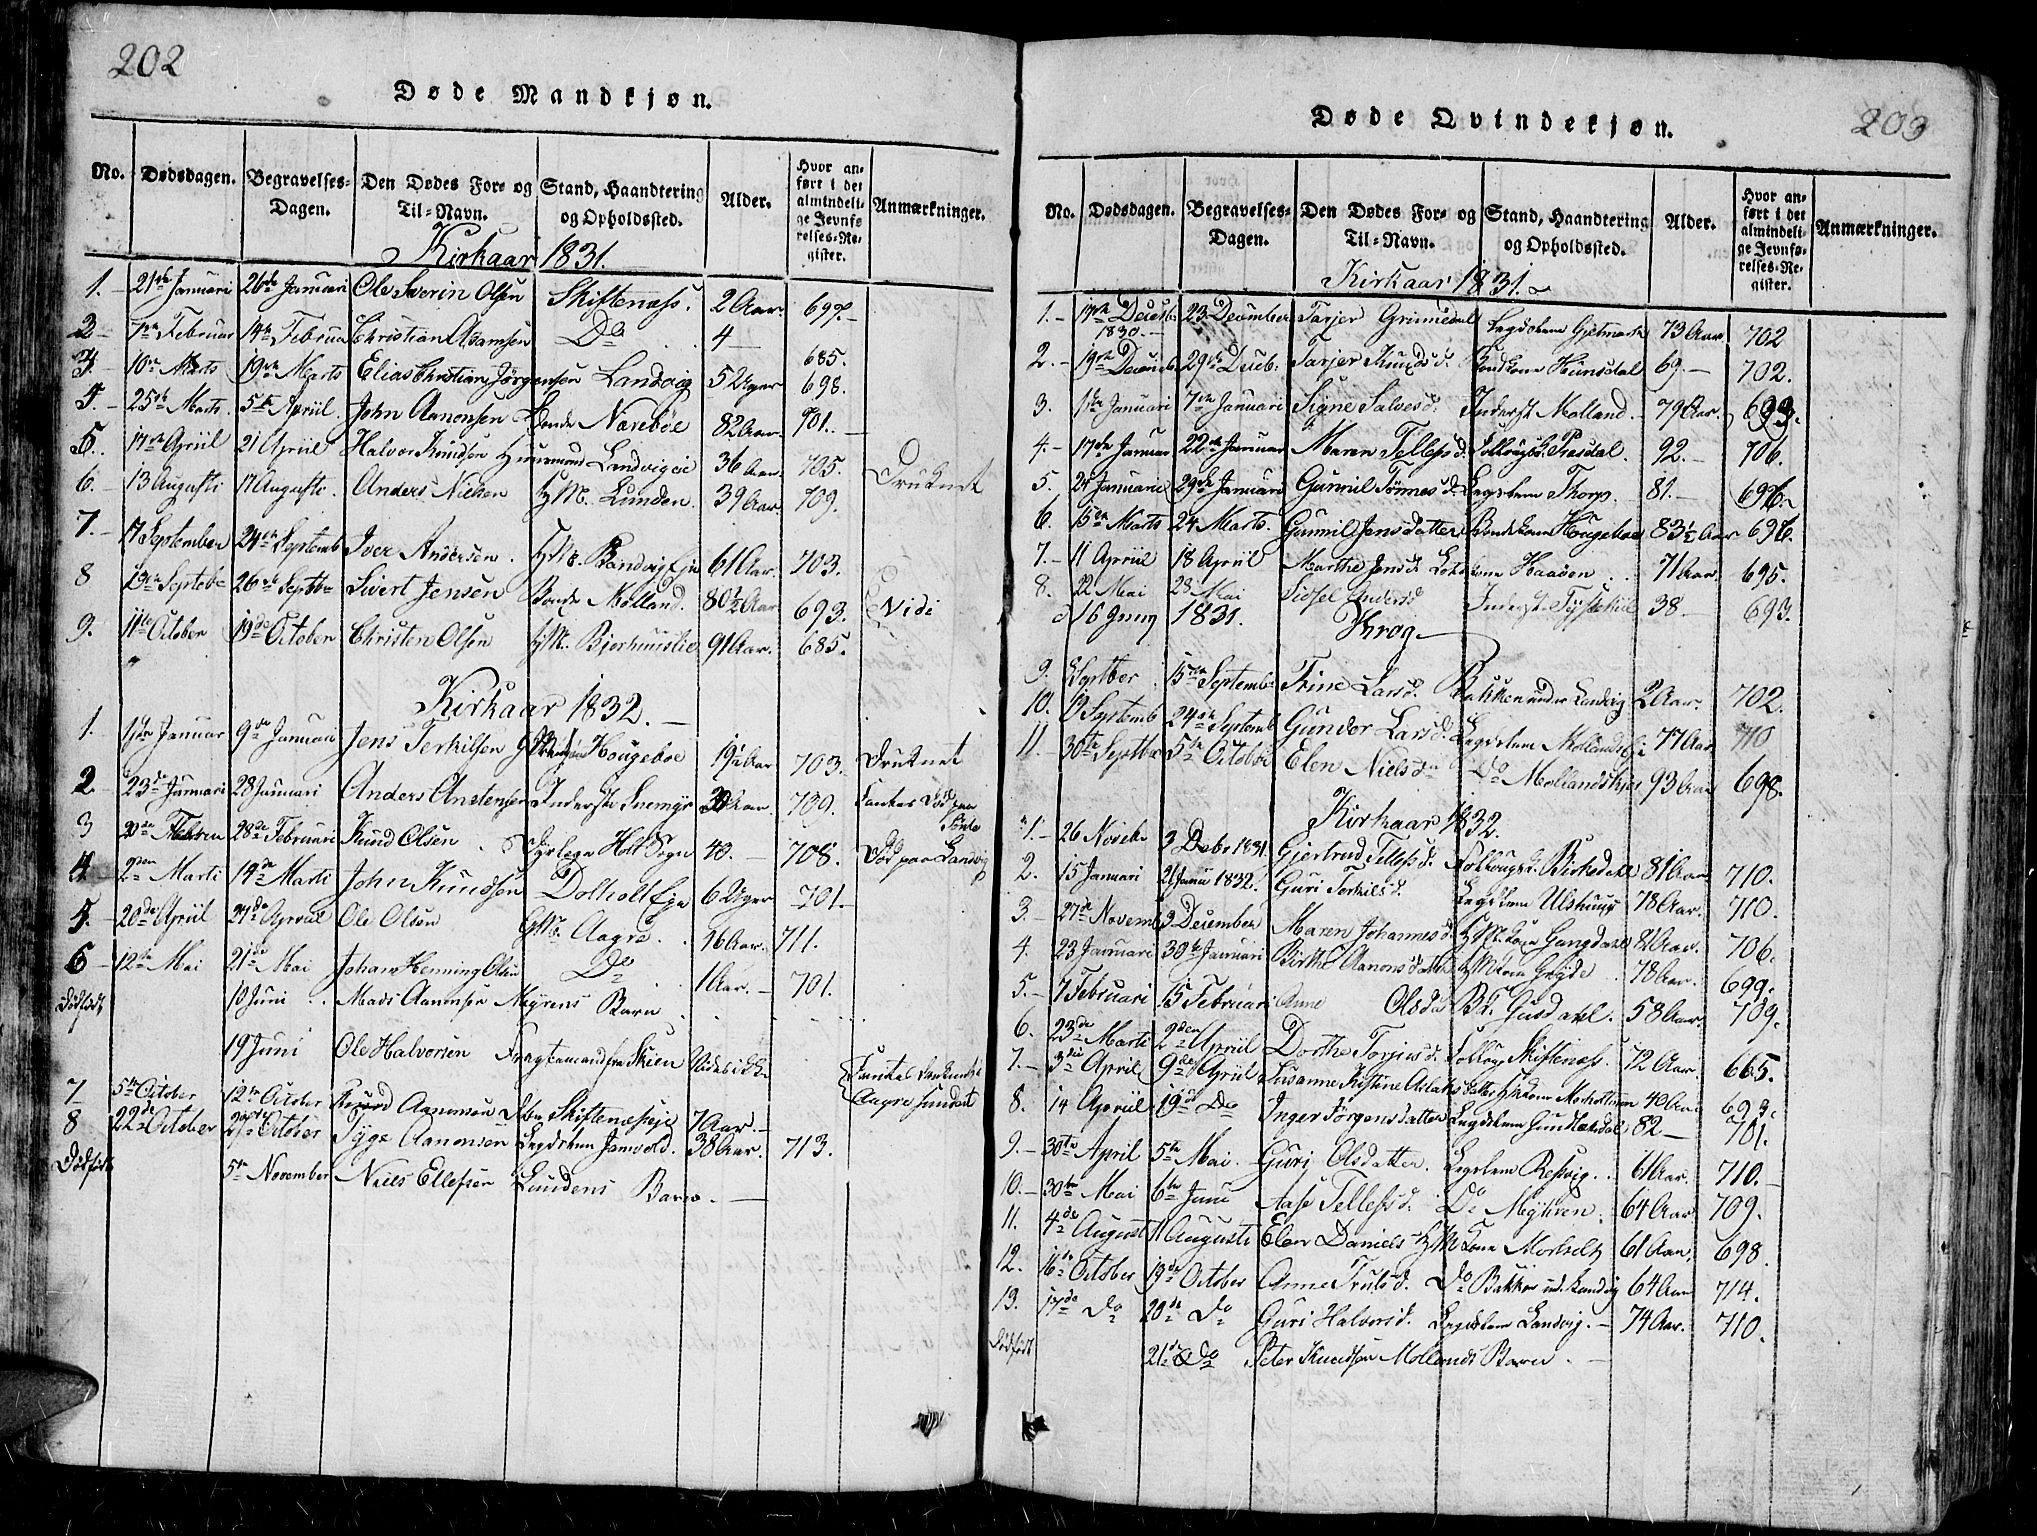 202
Døde Mandkjøn.
No. Dødsdagen. Begravelses-Dagen. Den Dødes For- og Til-Navn. Stand, Haandtering og Opholdssted. Alder. Hvor anført i det almindelige Jevnførelses-Register. Anmærkninger.
Kirkaar 1831.
1. 21de Januari 26de Januari Ole Sverin Olsen Skiftenæss. 2 Aar. 697.
2 7de Februar 14de Februa Christian Adamsen Do 4 685.
3. 10de Marts 19de Marts Elias Christian Jörgensen Landvig 5 Uger 698.
4. 25de Marts 5te Apriil John Aanonsen Bonde Nareböe 82 Aar. 701.
5. 17de Apriil 21 Apriil Halvor Knudsen Huusmand Landvigeie 36 Aar 705.
6. 13 Augusti 17 Augusti. Anders Nielsen H.M. Lunden. 39 Aar 709. Druknet
7. 17 September 24de Septemb Iver Andersen. H.M. Landvig Eje 61 Aar. 703.
8 19de Septeb 26de Septbe Sivert Jensen Bonde Molland. 80½ Aar 693. Nidi
9. 11te October 19de October Christen Olsen H.M. 91 Aar. 685.
Kirkaar 1832.
1. 1ste Januar 9de Januari Jens Terkilsen Hougeboe 19½ Aar 703. Druknet
2. 23de Januari 28 Januari Anders Anstensen Inderste Snemyr 30 Aar 709. Funden Död paa
3 28de Februari Knud Olsen Holt Sogn 40. 708. Död paa Landvig
4 2den Marti 14de Marti John Knudsen Dolholt Eje 6 Uger 701.
5. 20de Apriil 27de Apriil Ole Olsen H.M. Aagre. 76 Aar. 711.
6 12te Mai 21de Mai Johan Henning Olsen Do 1 Aar. 701.
Dödfödt 10 Juni Mads Aanonsen Myrens Barn
19 Juni Ole Halvorsen Fragtemand fra Skien Vides ikke
7 5te October 12te October Knud Aanonsen Skiftenæseje 7 Aar.
8 22de October 29de October Tyge Aanonsen Legdslem 38 Aar. 713.
Dödfödt 5te November Niels Ellefsen Lundens Barn.
203
Døde Qvindekjøn.
No. Dødsdagen. Begravelses-Dagen. Den Dødes For- og Til-Navn. Stand, Haandtering og Opholdssted. Alder. Hvor anført i det almindelige Jevnførelses-Register. Anmærkninger.
Kirkaar 1831.
1. 17de Decemb. 1830. 23 December Tarjer Grimedal Legdslem 73 Aar 702
2. 19de Decemb. 29de Deceb. Tarjer Knudsd. Bondkone 69. 702.
3. 1ste Januari 7de Januari Signe Salvesd. Inderst Molland. 79 Aar. 693.
4. 17de Januar 22de Januar Maren Tellefsd. 92. 706.
5. 24 Januarii 29de Januari Gunvil Tönnesd. Legslem Thorp. 81. 696.
6. 15de Marts 24 Marts. Gunnil Jensdatter Bondekone Hougeboe 83½ Aar 696.
7. 11 Apriil 18 Apriil Marthe Jensd. Haaven 71 Aar. 695.
8. 22 Mai 28 Mai Sidsel Andersd Inderst. 38. 693.
d 16 Juny 1831. Krog
9. Septber 15de Septemb. Trine Larsd. Bakken under Landvig 2 Aar. 702.
10. 19 Septemb 24de Septemb Gundor Larsd. Legdslem Mollands Ei 77 Aar 710
11. 30te Septbe 5te October Elen Nielsd. Do Mollandskjer 93 Aar 698.
Kirkaar 1832.
1. 26 Novebr 3 Debr 1831 Gjertrud Tellefsd. Birkedahl 81 Aar 710.
2. 15 Januari 21 Janu 1832. Guri Terkilsd. Legdslem 78 Aar. 710.
3. 27de Novemb 3 December Maren Johannesd. H.M. Kone Gangdahl 81 Aar. 706.
4. 23 Januari 30te Januari Birthe Aanonsdatter H.M. Kone 78 Aar. 699.
5. 7 Februari 15 Februari Anne Olsda 58 Aar. 709.
6. 23de Marti 2den Apriil Dorthe Torjusd. Skiftenæss. 72 Aar. 665.
7. 3die April 9de Apriil Susanne Kistine 40 Aar 693.
8. 14 Apriil 19de Do Inger Jörgensdatter Legdslem 82 701.
9. 30te April 5te Mai. Guri Olsdatter. Legslem 61 Aar. 710.
10. 30te Mai 6te Juni Aase Tellefsd. Do 64 Aar 709.
11. 4de August 11 Augusti Elen Daniels H.M. Kone Morholt 61 Aar. 698.
12. 16de October 19de October Anne Trulsd. Do Bakken ud. Landvig 64 Aar 714.
13. 17de Do 20de Do Guri Halvorsd. Legdslem Landvig. 74 Aar. 710.
Dödfödt 21de Do Peter Knudsen Mollands Barn.